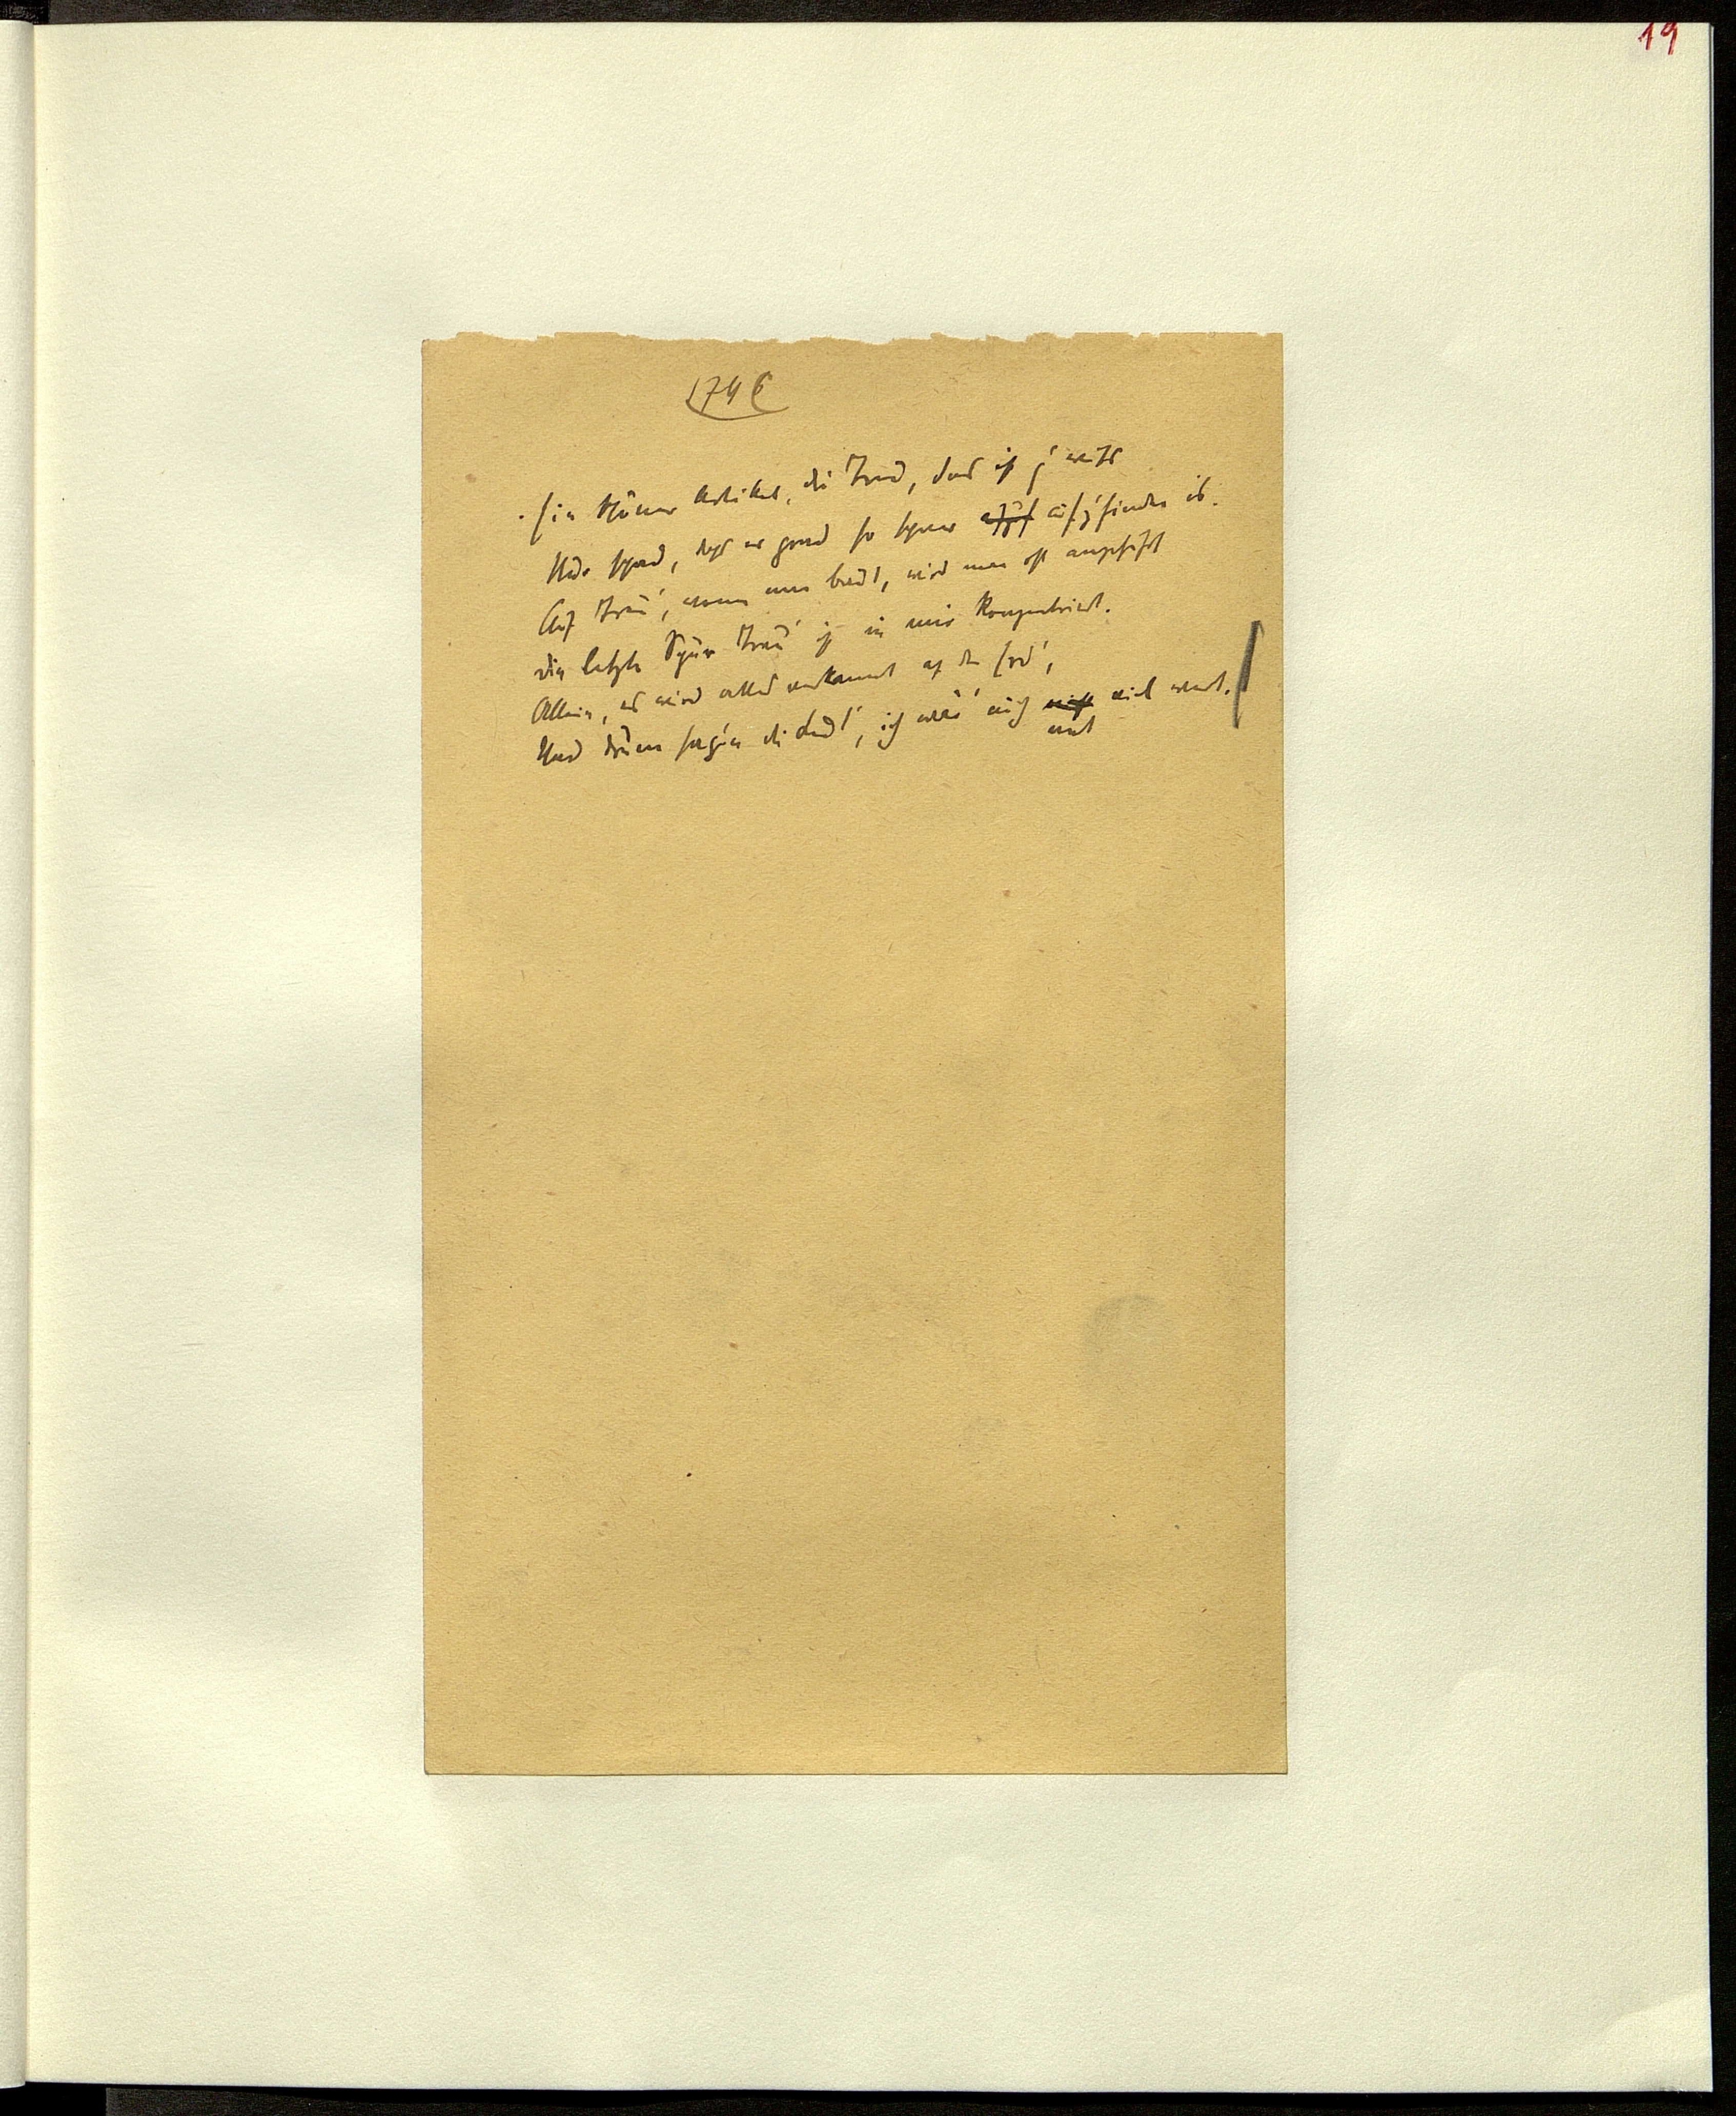 19
174
Ein schöner Artikel, die Treu, das ist g'wiß
Nur schad, daß er grad so schwer aufz'finden is.
Auf Treu', wenn man baut, wird man oft angeführt
die letzte Spur Treu' is in mir konzentriert.
Allein, es wird alles verkannt auf der Erd',
Und drum sag'n die Leut', ich wär' auch nicht viel wert.
nit